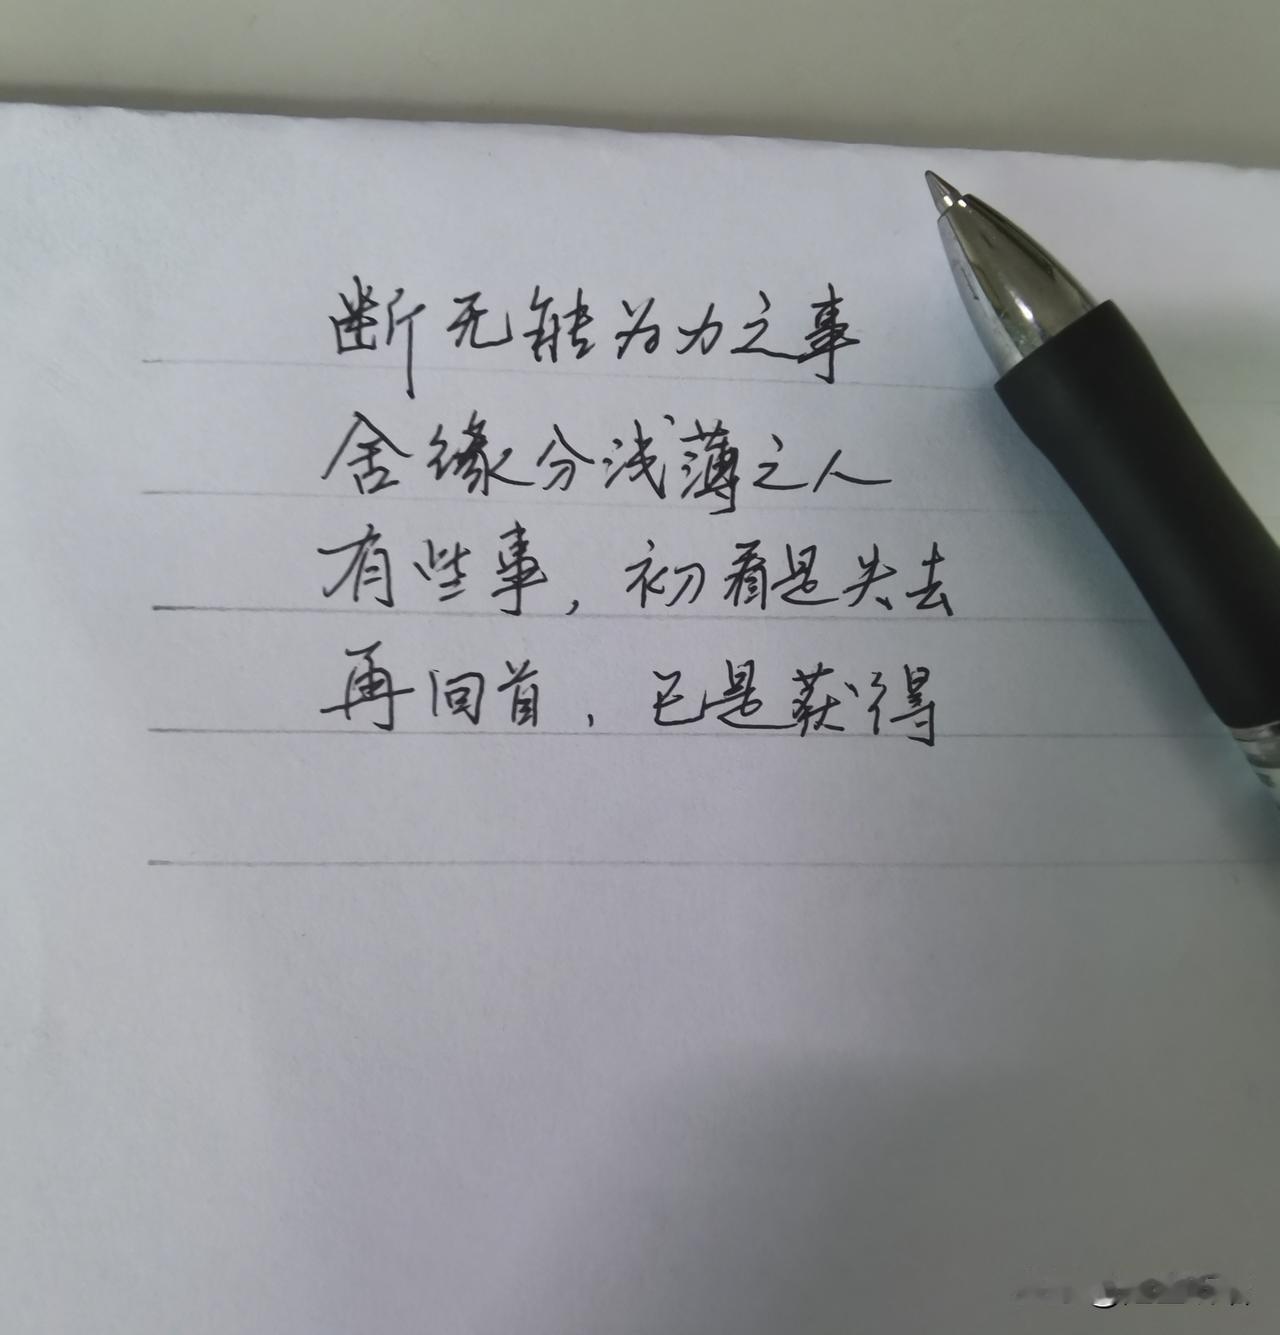 断无能为力之事
舍缘分浅薄之人
有些事，初看是失去
再回首，已是获得